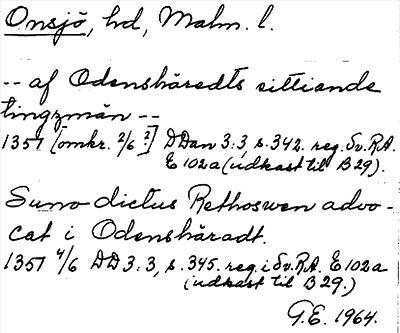 Onsjö, hd, Malm. l.
-- af Odenshäredts sittiande
tingzmän --
1351 [omkr. 2/6 ?] DDan 3:3, s. 342. reg. Sv. R.A.
E 102a (udkast til B 29).
Suno dictus Rethoswen advo-
cat i Odenshäradt.
1351 4/6 DD 3:3, s. 345. reg. i Sv. R.A. E 102a
(udkast til B 29.)
G.E. 1964.